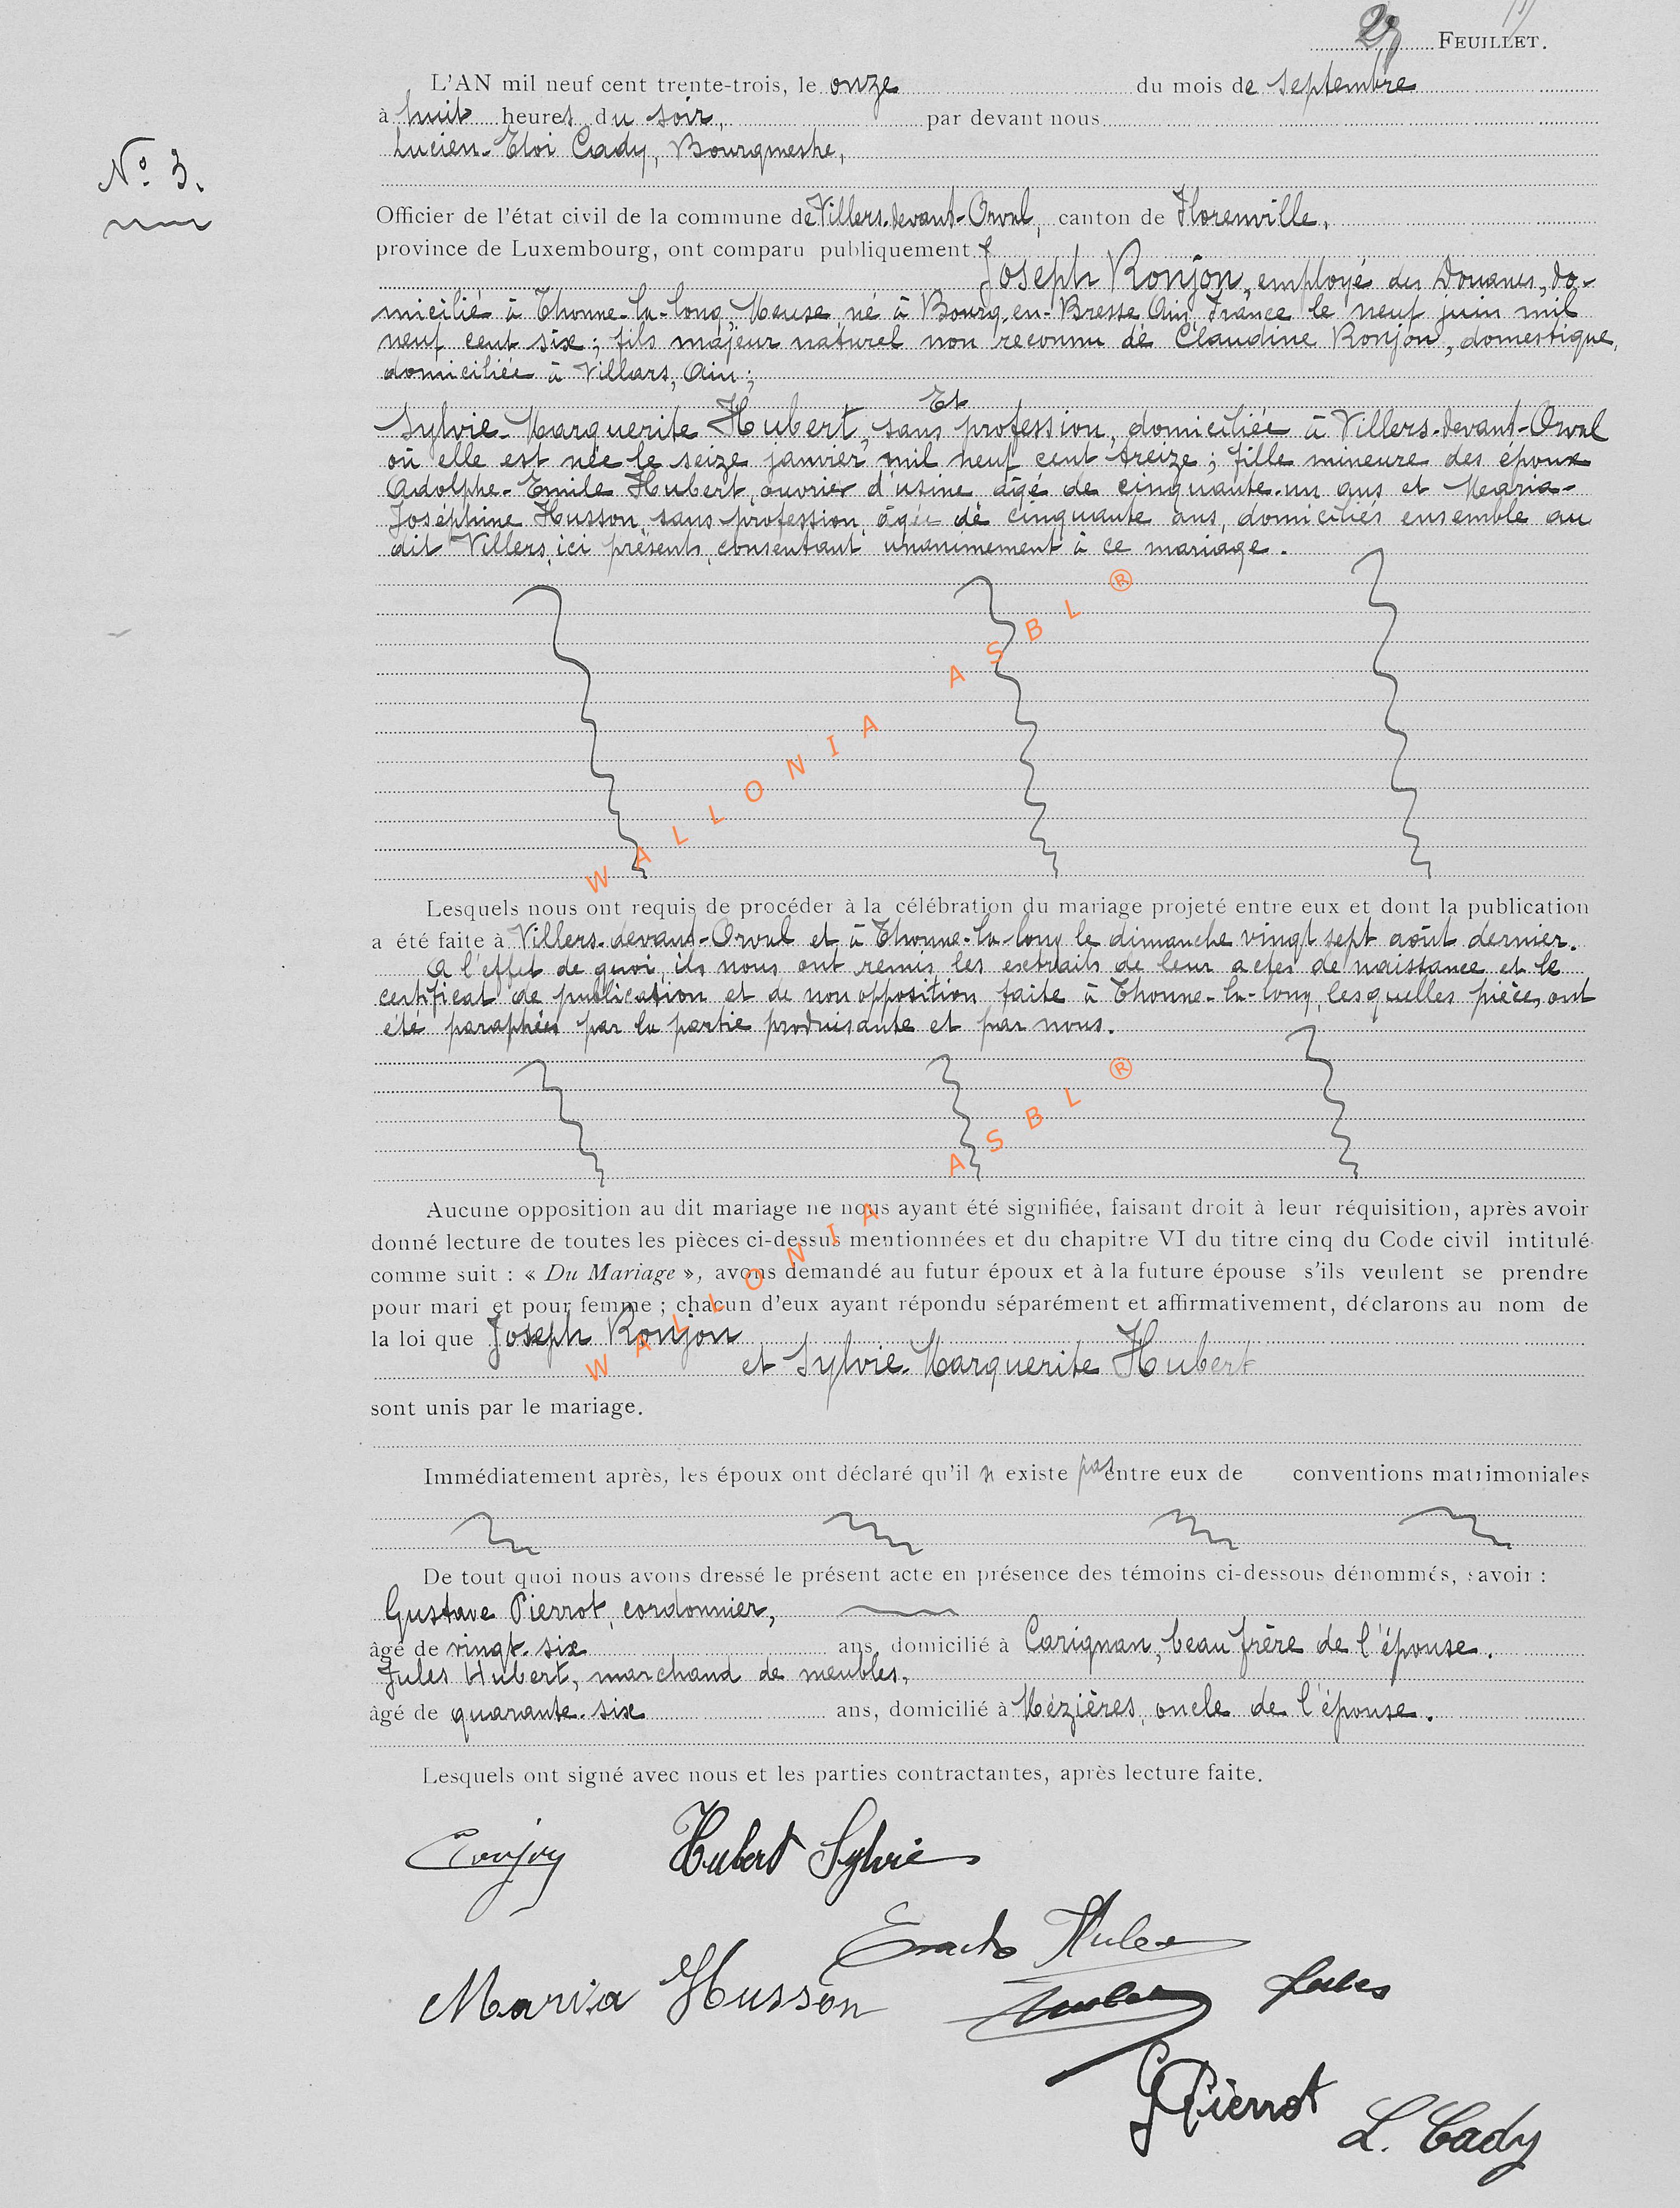 2e FEUILLET.
L'AN mil neuf cent trente-trois, le onze du mois de septembre
à huit heures du soir, par devant nous
Lucien-Eloi Cady, Bourgmestre,
N° 3.
Officier de l'état civil de la commune de Villers-devant-Orval, canton de Florenville,
province de Luxembourg, ont comparu publiquement
Joseph Ronjon, employé des Douanes, do-
micilié à Thonne-la-long, Meuse, né à Bourg-en-Bresse Ain, France le neuf juin mil
neuf cent six; fils majeur naturel non reconnu de Claudine Ronjon, domestique,
domiciliée à Villars, Ain;
Et
Sylvie-Marguerite Hubert, sans profession, domiciliée à Villers-devant-Orval
où elle est née le seize janvier mil neuf cent treize; fille mineure des époux
Adolphe-Emile Hubert, ouvrier d'usine âgé de cinquante-un ans et Maria-
Joséphine Husson, sans profession, âgée de cinquante ans, domiciliés ensemble au
dit Villers, ici présents, consentant unanimement à ce mariage.
WALLONIA ASBL ®
Lesquels nous ont requis de procéder à la célébration du mariage projeté entre eux et dont la publication
a été faite à Villers-devant-Orval et à Thonne-la-long le dimanche vingt sept août dernier.
A l'effet de quoi, ils nous ont remis les extraits de leur actes de naissance et le
certificat de publication et de non opposition faite à Thonne-la-long, lesquelles pièces ont
été paraphées par la partie produisante et par nous.
WALLONIA ASBL ®
Aucune opposition au dit mariage ne nous ayant été signifiée, faisant droit à leur réquisition, après avoir
donné lecture de toutes les pièces ci-dessus mentionnées et du chapitre VI du titre cinq du Code civil intitulé
comme suit : « Du Mariage », avons demandé au futur époux et à la future épouse s'ils veulent se prendre
pour mari et pour femme ; chacun d'eux ayant répondu séparément et affirmativement, déclarons au nom de
la loi que Joseph Ronjon
et Sylvie-Marguerite Hubert
sont unis par le mariage.
Immédiatement après, les époux ont déclaré qu'il n existe pas entre eux de conventions matrimoniales
De tout quoi nous avons dressé le présent acte en présence des témoins ci-dessous dénommés, savoir :
Gustave Pierrot, cordonnier,
âgé de vingt-six ans, domicilié à Carignan, beau frère de l'épouse.
Jules Hubert, marchand de meubles,
âgé de quarante-six ans, domicilié à Mézières, oncle de l'épouse.
Lesquels ont signé avec nous et les parties contractantes, après lecture faite.
Ronjon Hubert Sylvie
Hubert
Maria Husson Hubert Jules
G Pierrot
L. Cady